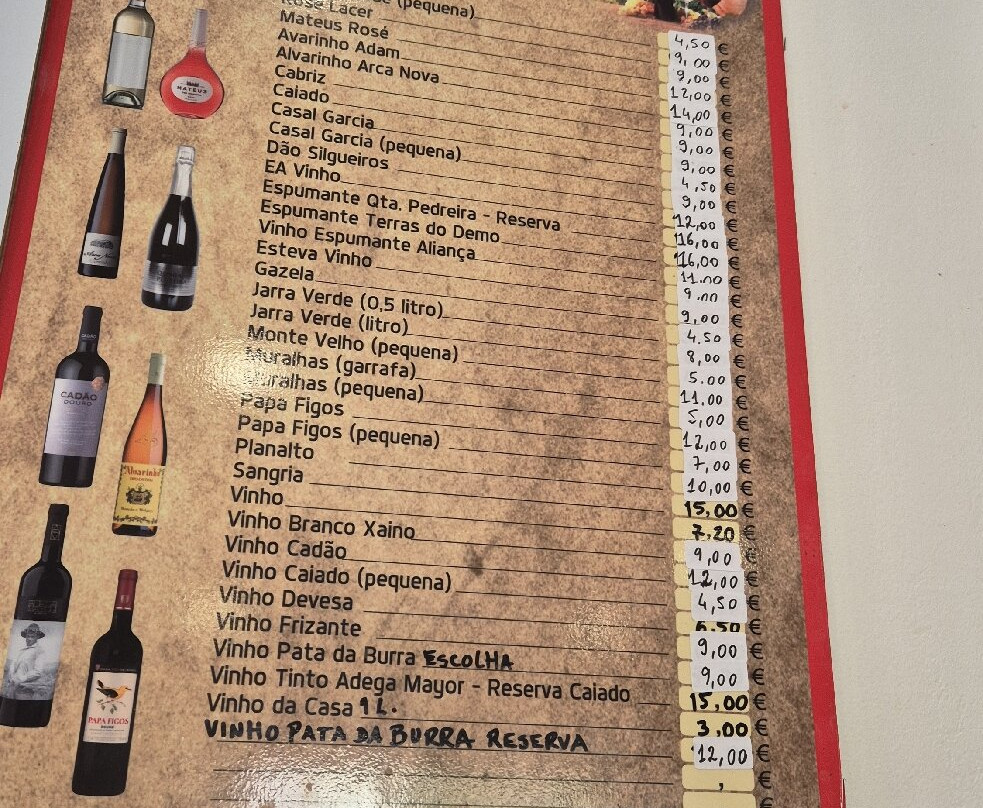 (pequena) 4,50 €
Rosé Lacer 9,00 €
Mateus Rosé 9,00 €
Avarinho Adam 12,00 €
Alvarinho Arca Nova 14,00 €
Cabriz 9,00 €
Caiado 9,00 €
Casal Garcia 9,00 €
Casal Garcia (pequena) 4,50 €
Dão Silgueiros 9,00 €
EA Vinho 12,00 €
Espumante Qta. Pedreira - Reserva 16,00 €
Espumante Terras do Demo 16,00 €
Vinho Espumante Aliança 11.00 €
Esteva Vinho 9.00 €
Gazela 9,00 €
Jarra Verde (0,5 litro) 4.50 €
Jarra Verde (litro) 8,00 €
Monte Velho (pequena) 5.00 €
Muralhas (garrafa) 11.00 €
Muralhas (pequena) 5,00 €
Papa Figos 12,00 €
Papa Figos (pequena) 7,00 €
Planalto 10,00 €
Sangria 15,00 €
Vinho 7.20 €
Vinho Branco Xaino 9,00 €
Vinho Cadão 12,00 €
Vinho Caiado (pequena) 4,50 €
Vinho Devesa 6.50 €
Vinho Frizante 9,00 €
Vinho Pata da Burra ESCOLHA 9,00 €
Vinho Tinto Adega Mayor - Reserva Caiado 15,00 €
Vinho da Casa 1L. 3,00 €
VINHO PATA DA BURRA RESERVA 12,00 €
, €
€
MATEUS
CADÃO
DOURO
Alvarinho
PAPA FIGOS